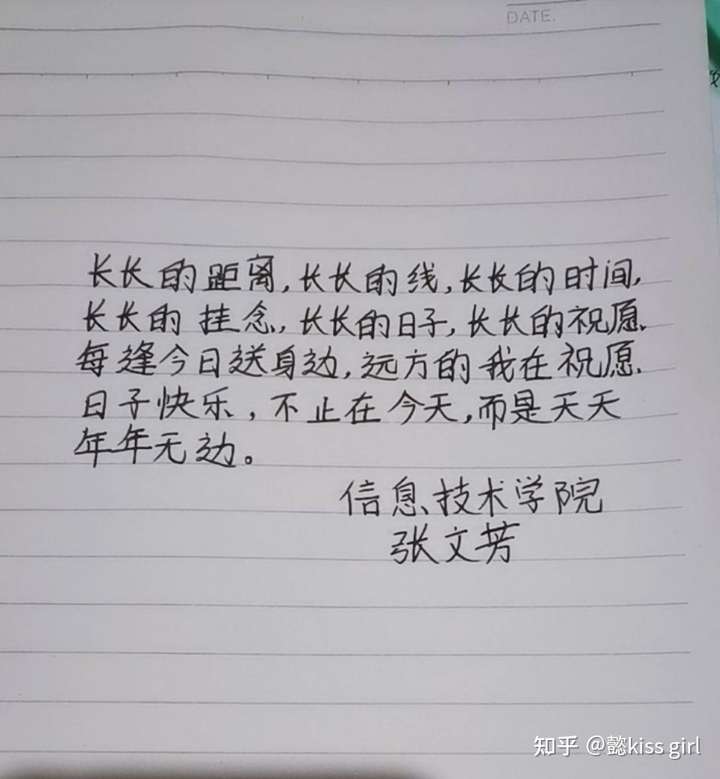 DATE.
长长的距离,长长的线,长长的时间,
长长的挂念,长长的日子,长长的祝愿、
每逢今日送身边,远方的我在祝愿、
日子快乐,不止在今天,而是天天
年年无边。
信息技术学院
张文芳
知乎 @懿kiss girl